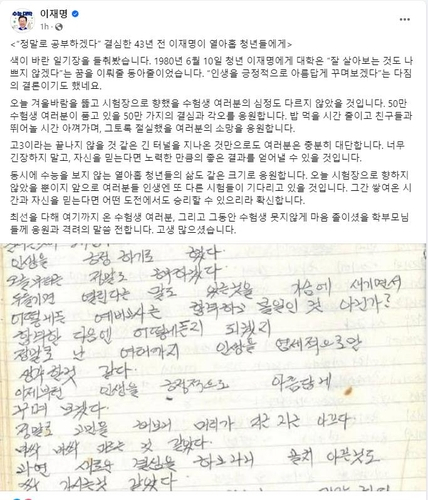 이재명
1h
<"정말로 공부하겠다" 결심한 43년 전 이재명이 열아홉 청년들에게>
색이 바랜 일기장을 들춰봤습니다. 1980년 6월 10일 청년 이재명에게 대학은 "잘 살아보는 것도 나
쁘지 않겠다"는 꿈을 이뤄줄 동아줄이었습니다. "인생을 긍정적으로 아름답게 꾸며보겠다"는 다짐
의 결론이기도 했네요.
오늘 겨울바람을 뚫고 시험장으로 향했을 수험생 여러분의 심정도 다르지 않았을 것입니다. 50만
수험생 여러분이 품고 있을 50만 가지의 결심과 각오를 응원합니다. 밥 먹을 시간 줄이고 친구들과
뛰어놀 시간 아껴가며, 그토록 절실했을 여러분의 소망을 응원합니다.
고3이라는 끝나지 않을 것 같은 긴 터널을 지나온 것만으로도 여러분은 충분히 대단합니다. 너무
긴장하지 말고, 자신을 믿는다면 노력한 만큼의 좋은 결과를 얻어낼 수 있을 것입니다.
동시에 수능을 보지 않는 열아홉 청년들의 삶도 같은 크기로 응원합니다. 오늘 시험장으로 향하지
않았을 뿐이지 앞으로 여러분들 인생엔 또 다른 시험들이 기다리고 있을 것입니다. 그간 쌓여온 시
간과 자신을 믿는다면 어떤 도전에서도 승리할 수 있으리라 확신합니다.
최선을 다해 여기까지 온 수험생 여러분, 그리고 그동안 수험생 못지않게 마음 졸이셨을 학부모님
들께 응원과 격려의 말씀 전합니다. 고생 많으셨습니다.
인생을 긍정하기로 했다.
오늘부터는 정말로 해야겠다.
두들기면 열린다는 말도 있는것을 가슴에 새기면서
어떻게든 예비고사는 합격하고 볼일인 것 아닌가?
합격한 다음엔 어떻게든지 되겠지
정말로 난 여태까지 인생을 염세적으로만
생각한것 같다.
이제부턴 인생을 긍정적으로 아름답게
꾸며 보겠다.
정말로 고민을 해보니 머리가 지근 지근 아프다
바싹 바싹 마르는 것 같았다.
과연 새로운 결심을 하고나니
것 같았다.